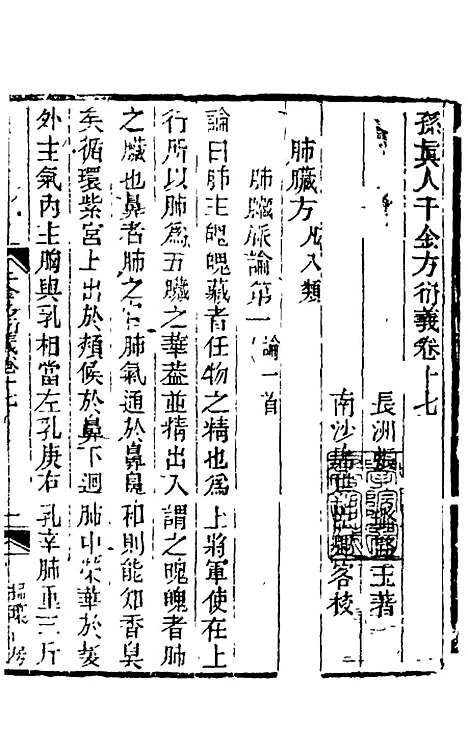 孫眞人千金方衍義卷十七
長洲 玉著
南沙 客校
肺臟方凡八類
肺臟脈論第一論一首
論曰肺主魄魄藏者任物之精也爲上將軍使在上
行所以肺爲五臟之華葢並精出入謂之魄魄者肺
之臟也鼻者肺之官肺氣通於鼻鼻和則能知香臭
矣循環紫宮上出於頰候於鼻下迴肺中榮華於髮
外主氣內主胸與乳相當左乳庚右乳辛肺重三斤
千金方衍義卷十七
一